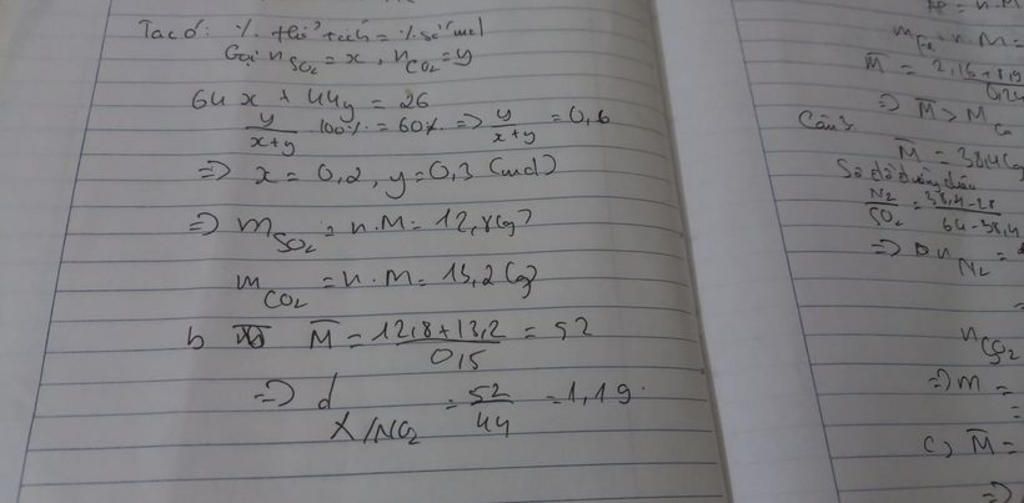 Ta có: % thể tích = % số mol
Gọi n SO₂ = x, n CO₂ = y
64x + 44y = 26
y/x+y 100% = 60% => y/x+y = 0,6
=> x = 0,2, y = 0,3 (mol)
=> m SO₂ = n.M = 12,8(g)
m CO₂ = n.M = 13,2(g)
b M̅ = 12,8+13,2/0,5 = 52
=> d X/NO₂ = 52/44 = 1,19.
= n.M
m Fe = n.M =
M̅ = 2,16+8,9
0,24
=> M̅ > M
Câu 3
M̅ = 38,4(g
Sơ đồ đường chéo
N₂/SO₂ = 38,4-28/64-38,4
=> n N₂ =
=
n CO₂
=> m =
=
c) M̅ =
=>